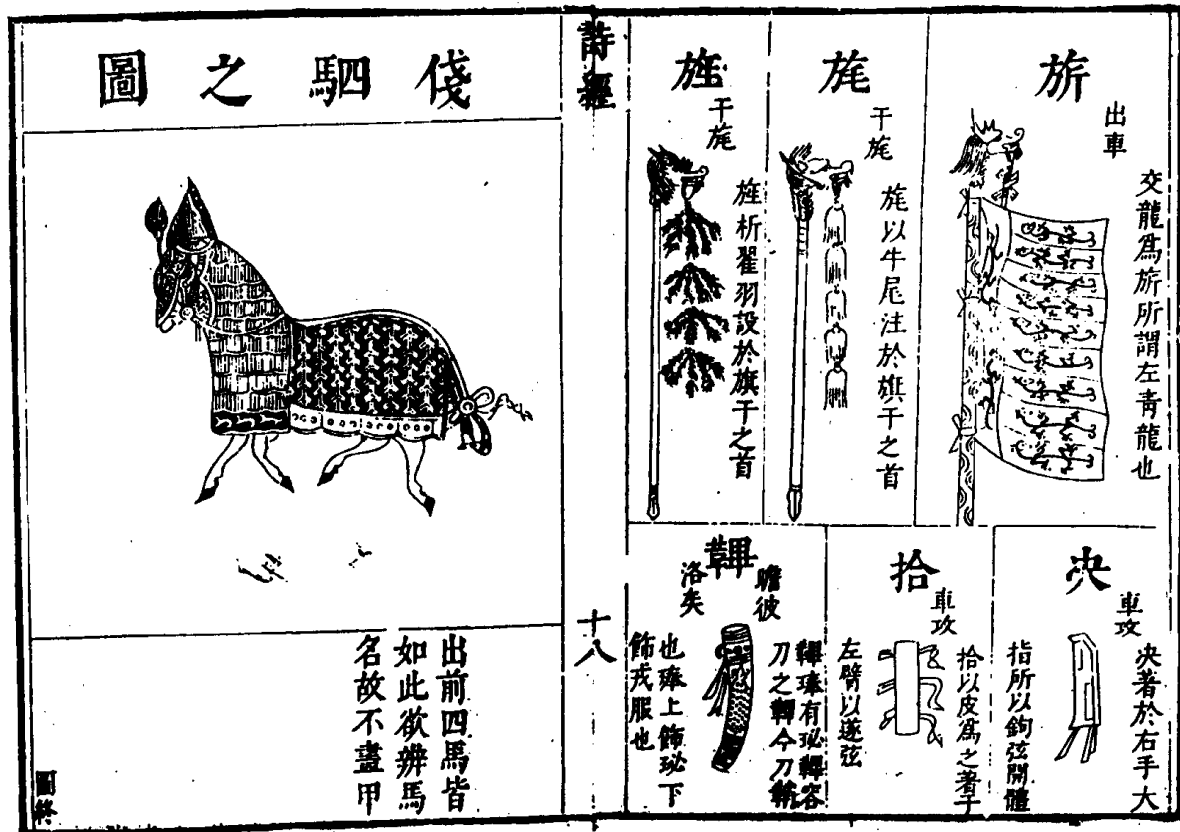 旂
出車
交龍爲旂所謂左青龍也
旄
干旄
旄以牛尾注於旗干之首
旌
干旄
旌析翟羽設於旗干之首
決
車攻
決著於右手大
指所以鉤弦開體
拾
車攻
拾以皮爲之著于
左臂以遂弦
鞞
瞻彼
洛矣
鞞琫有珌鞞容
刀之鞞今刀鞘
也琫上飾珌下
飾戎服也
詩經
十八
俴駟之圖
出前四馬皆
如此欲辨馬
名故不盡甲
圖終